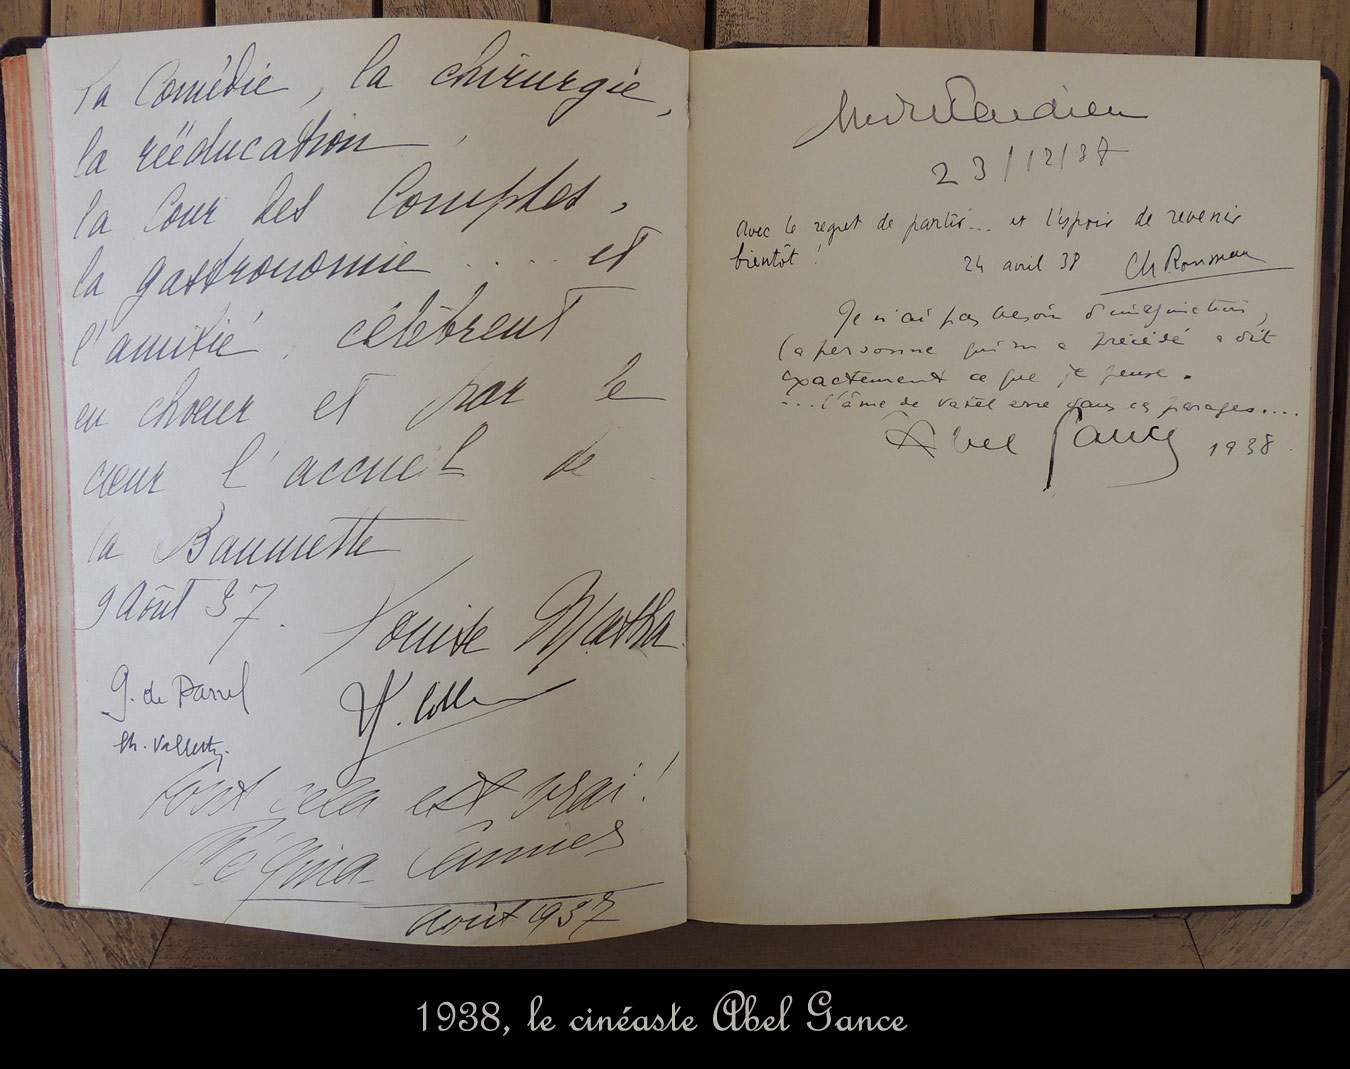 la Comédie, la chirurgie,
la rééducation,
la Cour des Comptes,
la gastronomie ..... et
l'amitié, célèbrent
en choeur et par le
cœur l'accueil de
la Baumette
9 Août 37.
Louise Martha
G. de Parrel
Tout cela est vrai!
Régina Camier
août 1937
23/12/37
avec le regret de partir... et l'espoir de revenir
bientôt! 24 avril 38 Ch Rousseau
Je n'ai pas besoin d'imagination,
la personne qui m'a précédé a dit
exactement ce que je pense.
...l'âme de Vatel erre dans ces parages....
Abel Gance 1938.
1938, le cinéaste Abel Gance